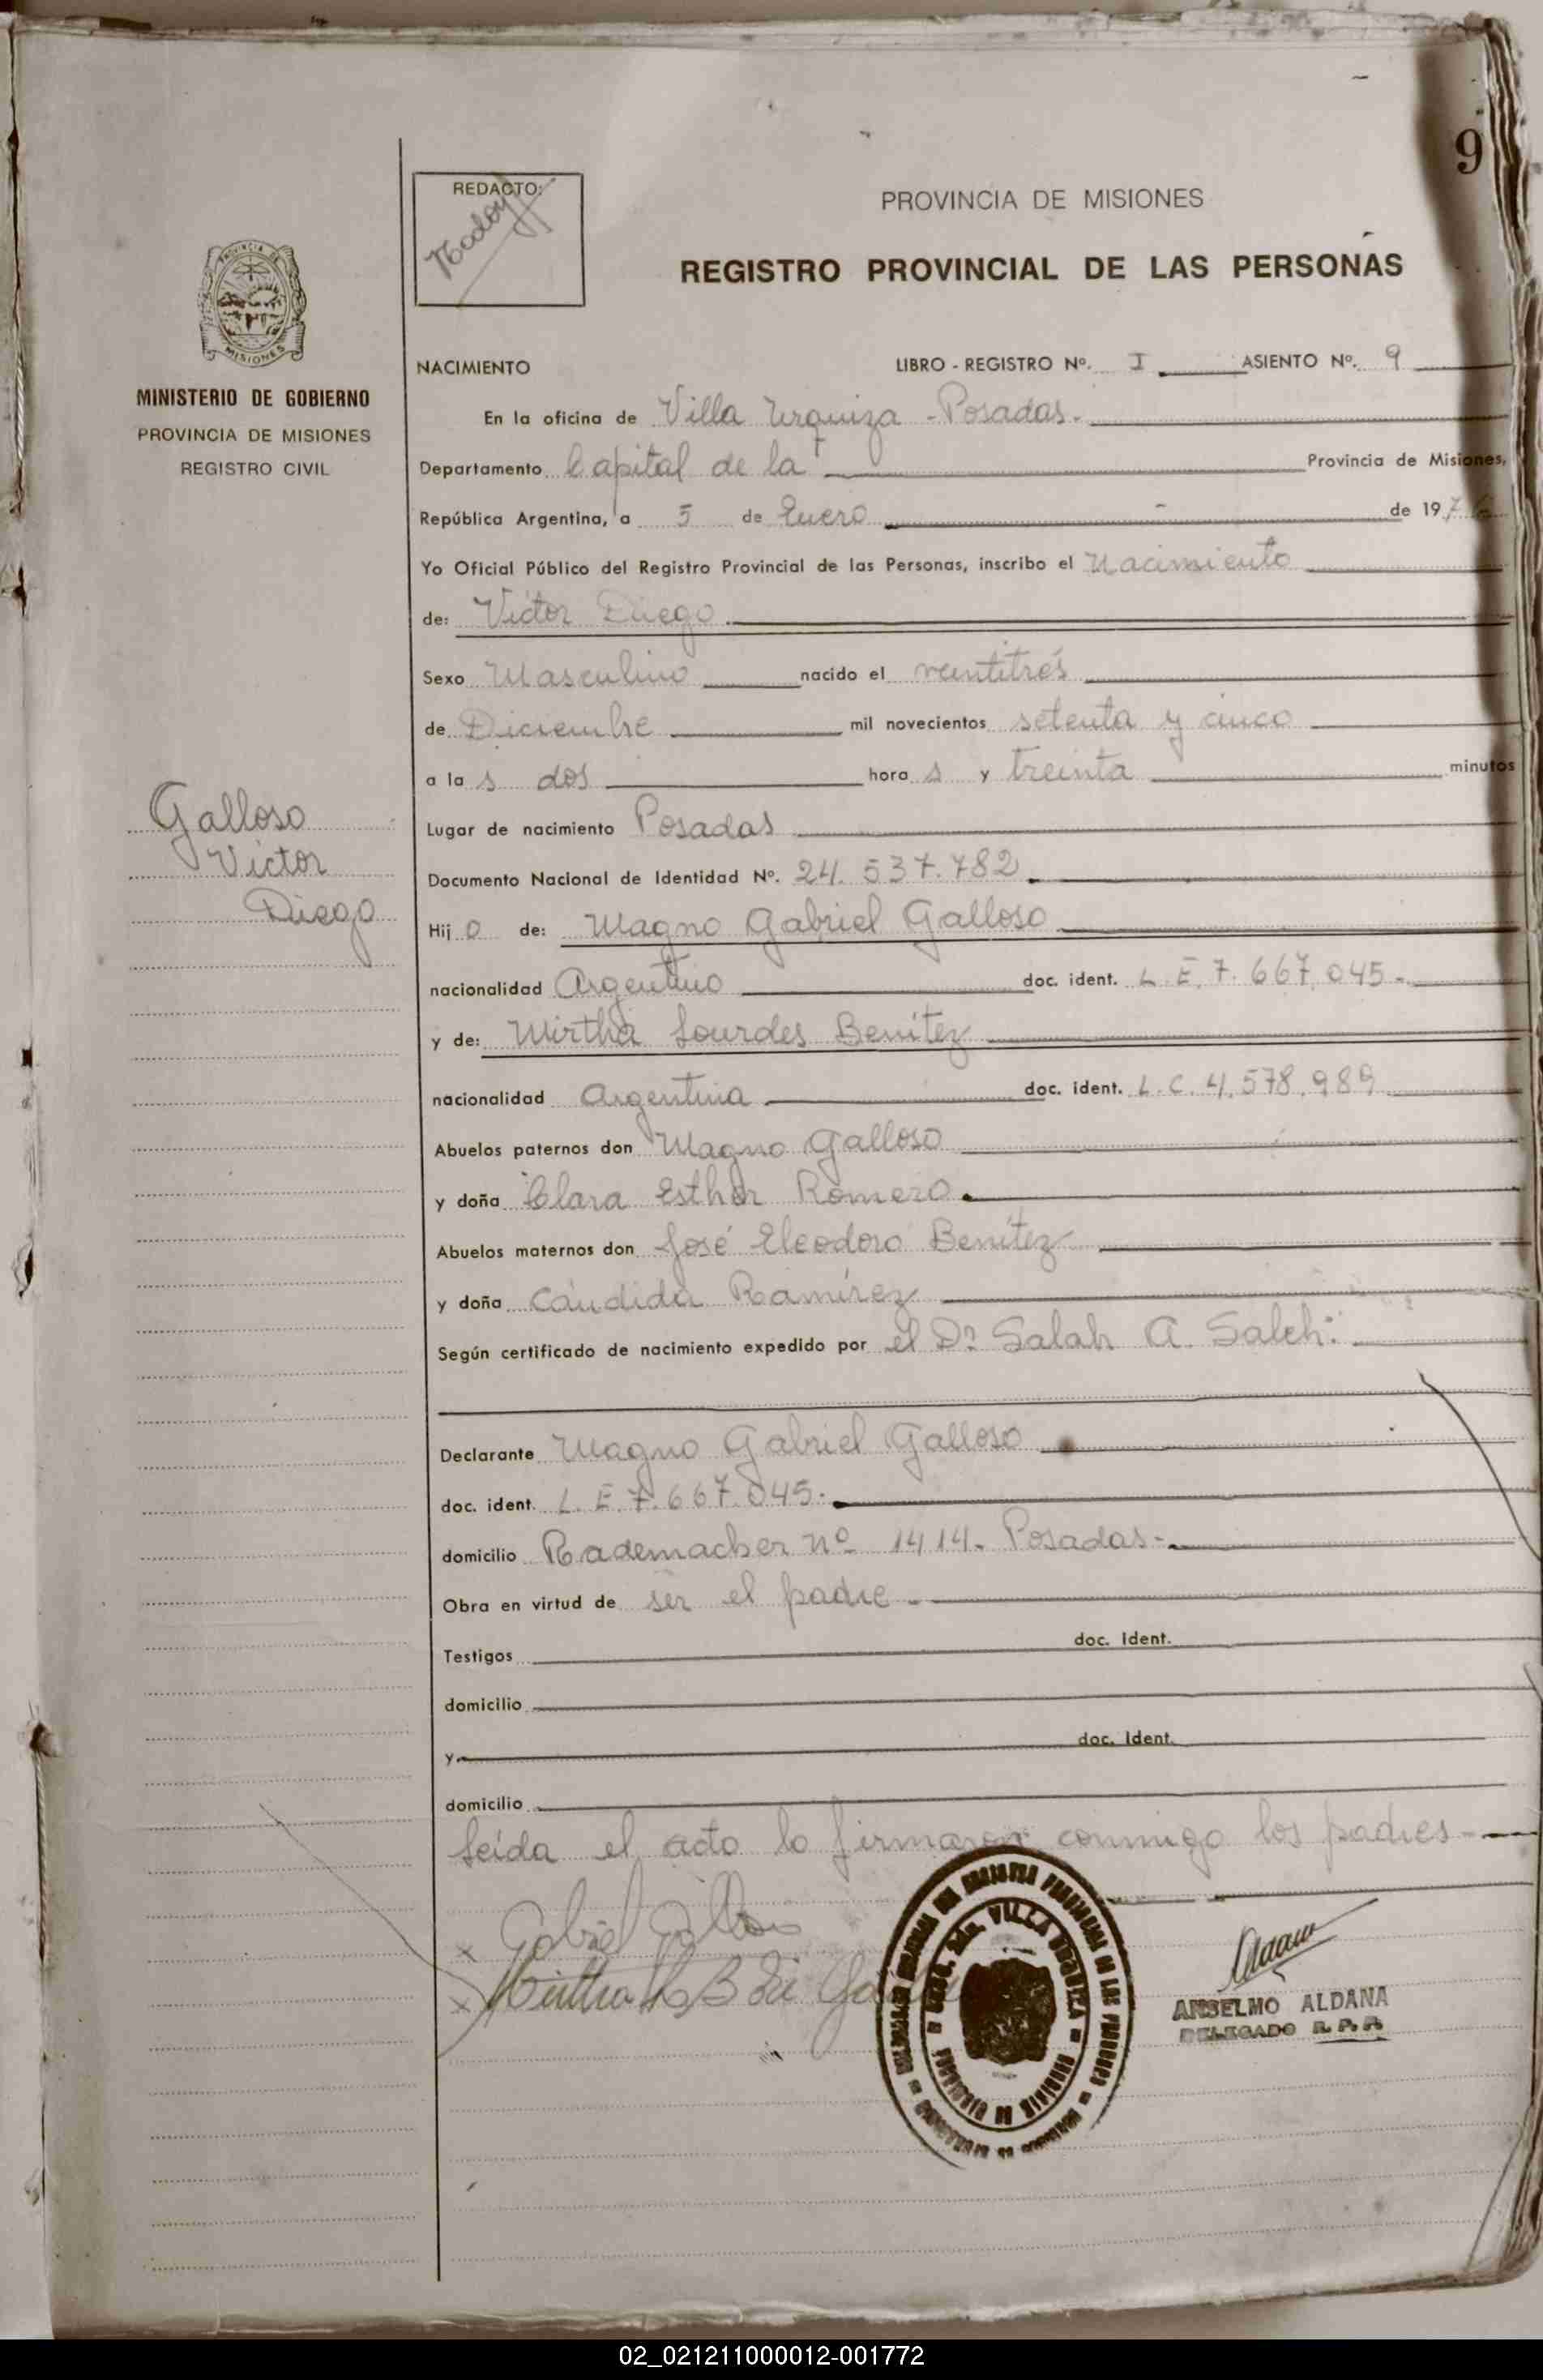 9
REDACTO:
PROVINCIA DE MISIONES
REGISTRO PROVINCIAL DE LAS PERSONAS
PROVINCIA DE
MISIONES
MINISTERIO DE GOBIERNO
PROVINCIA DE MISIONES
REGISTRO CIVIL
NACIMIENTO LIBRO - REGISTRO Nº. I ASIENTO Nº. 9
En la oficina de Villa Urquiza - Posadas.
Departamento Capital de la Provincia de Misiones,
República Argentina, a 5 de Enero de 1976
Yo Oficial Público del Registro Provincial de las Personas, inscribo el Nacimiento
de: Víctor Diego
Sexo Masculino nacido el veintitrés
de Diciembre mil novecientos setenta y cinco
a la s dos hora s y treinta minutos
Lugar de nacimiento Posadas
Documento Nacional de Identidad Nº. 24.537.782
Galloso
Víctor
Diego
Hij o de: Magno Gabriel Galloso
nacionalidad Argentino doc. ident. L.E. 7.667.045-
y de: Mirtha Lourdes Benítez
nacionalidad Argentina doc. ident. L.C. 4.578.989
Abuelos paternos don Magno Galloso
y doña Clara Esther Romero
Abuelos maternos don José Eleodoro Benítez
y doña Cándida Ramírez
Según certificado de nacimiento expedido por el Dr. Salah A. Saleh.
Declarante Magno Gabriel Galloso
doc. ident. L.E. 7.667.045.
domicilio Rademacher nº 1414. Posadas-
Obra en virtud de ser el padre
Testigos doc. ident.
domicilio
y doc. ident.
domicilio
Leída el acta la firmaron conmigo los padres-
x Gabriel Galloso
x Mirtha L B de
VILLA URQUIZA
ANSELMO ALDANA
DELEGADO R. P. P.
02_021211000012-001772